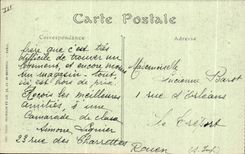 Carte Postale
Correspondance
Adresse
père que c'est très
difficile de trouver un
logement, et encore moins
un magasin. tout
ici est hors de prix.
Reçois les meilleures
amitiés, d'une
Camarade de classe
Simone
23 rue des Charrettes
Rouen
Mademoiselle
Lucienne Barot
1 rue d'Orléans
Le Tréport
(S. Inf)